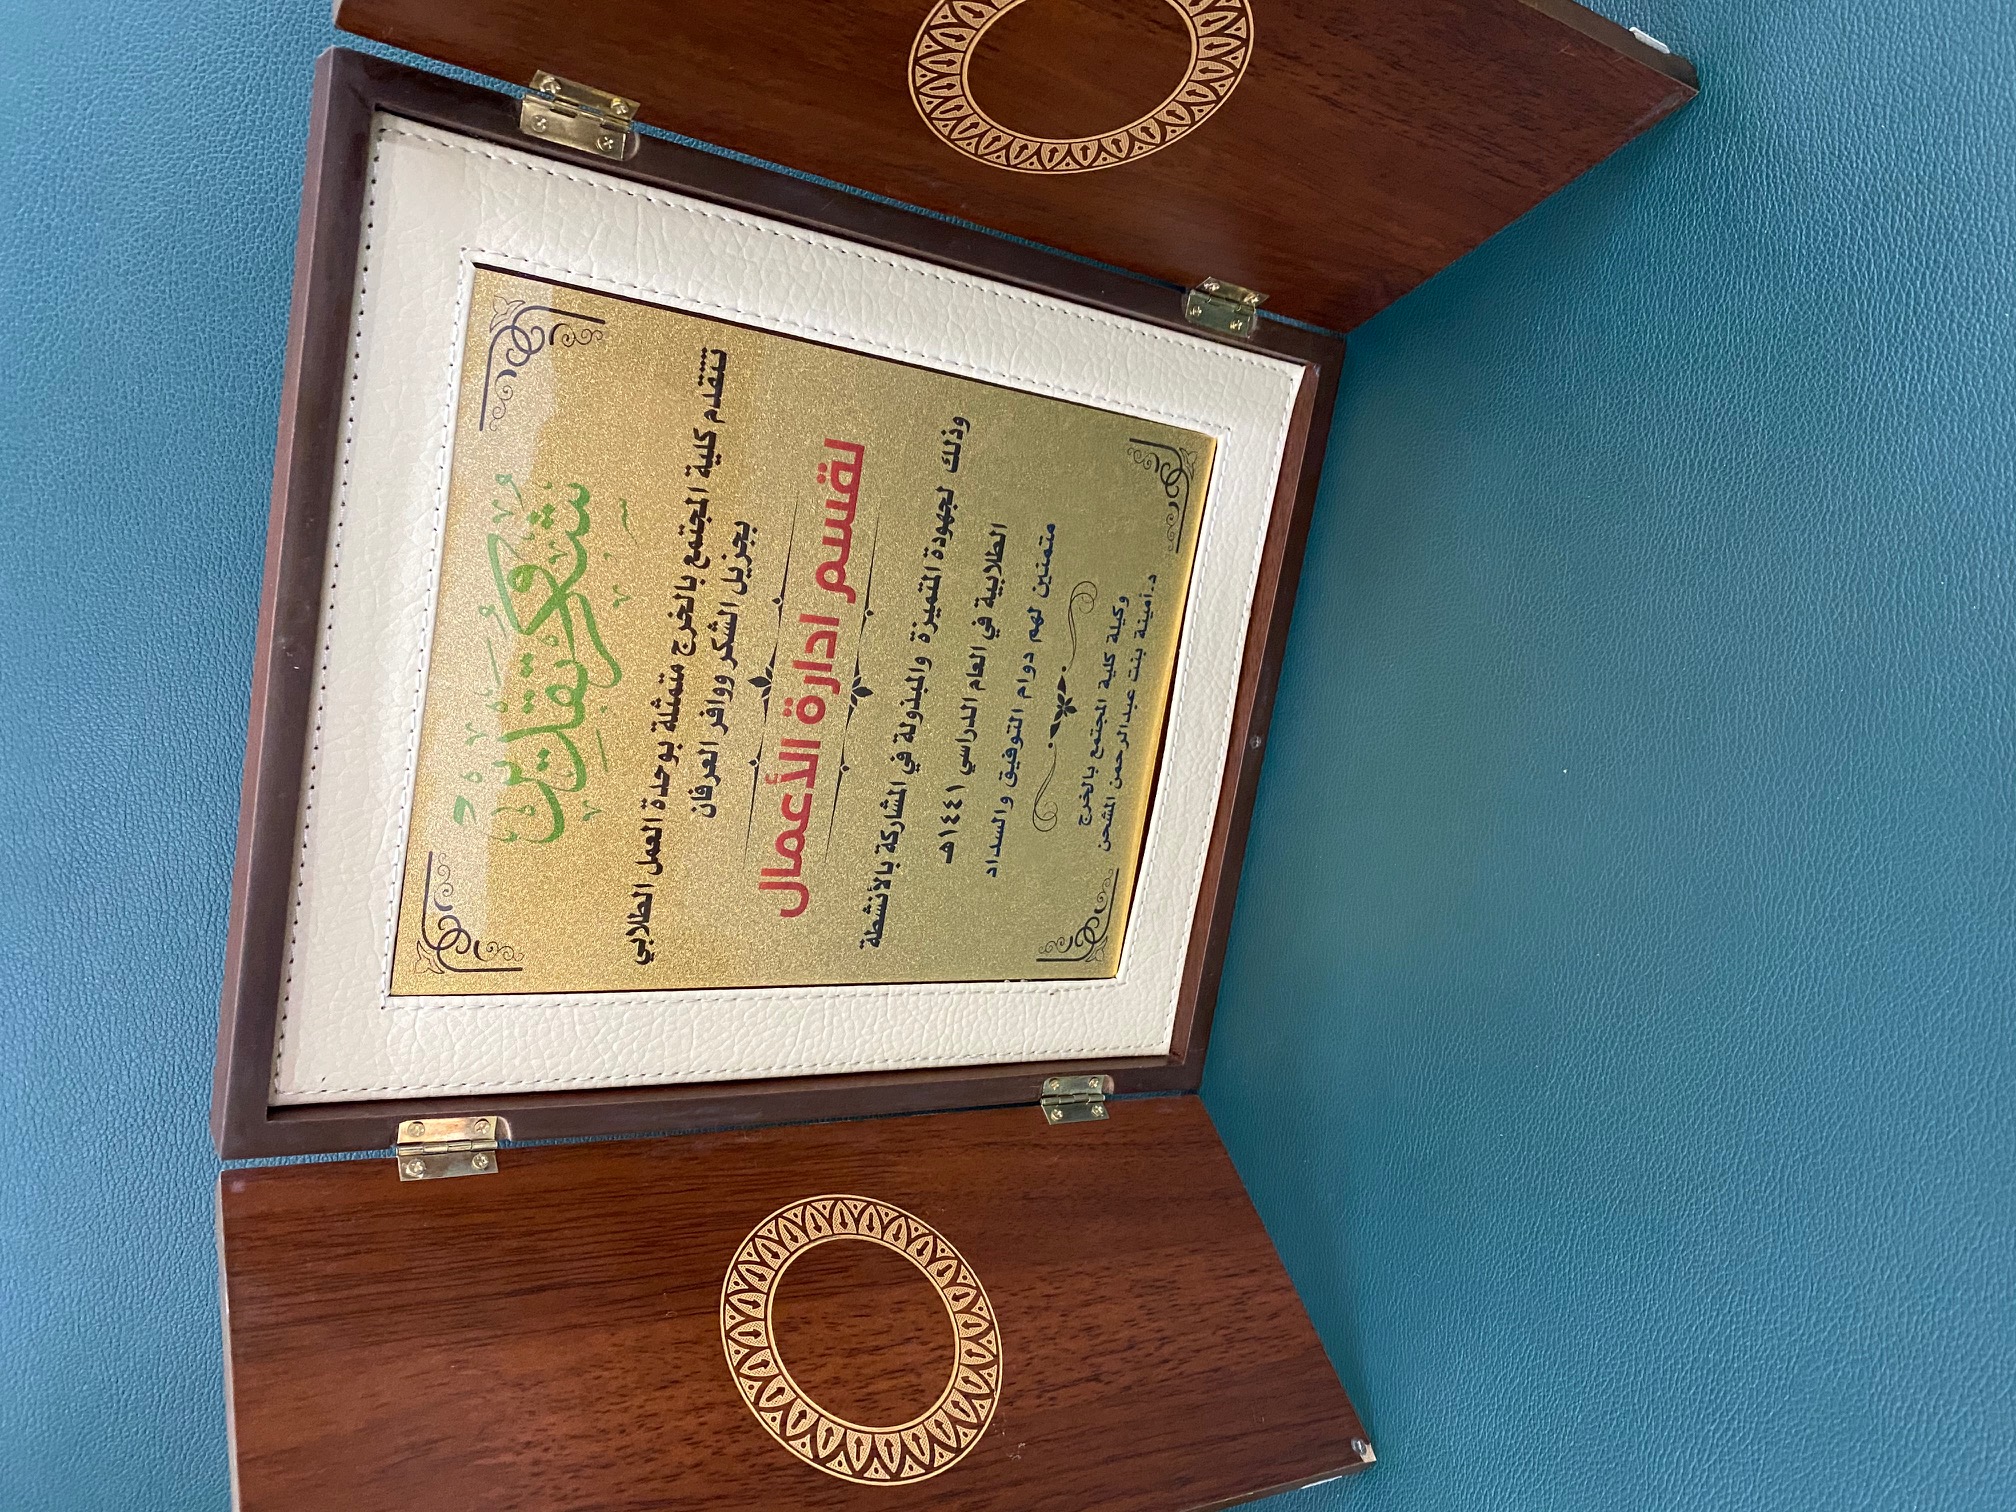 شكر وتقدير
تتقدم كلية المجتمع بالخرج متمثلة بوحدة العمل الطلابي
بجزيل الشكر ووافر العرفان
لقسم ادارة الأعمال
وذلك لجهودة المتميزة والمبذولة في المشاركة بالأنشطة
الطلابية في العام الدراسي ١٤٤١هـ
متمنين لهم دوام التوفيق والسداد
وكيلة كلية المجتمع بالخرج
د.أمينة بنت عبدالرحمن المشحن